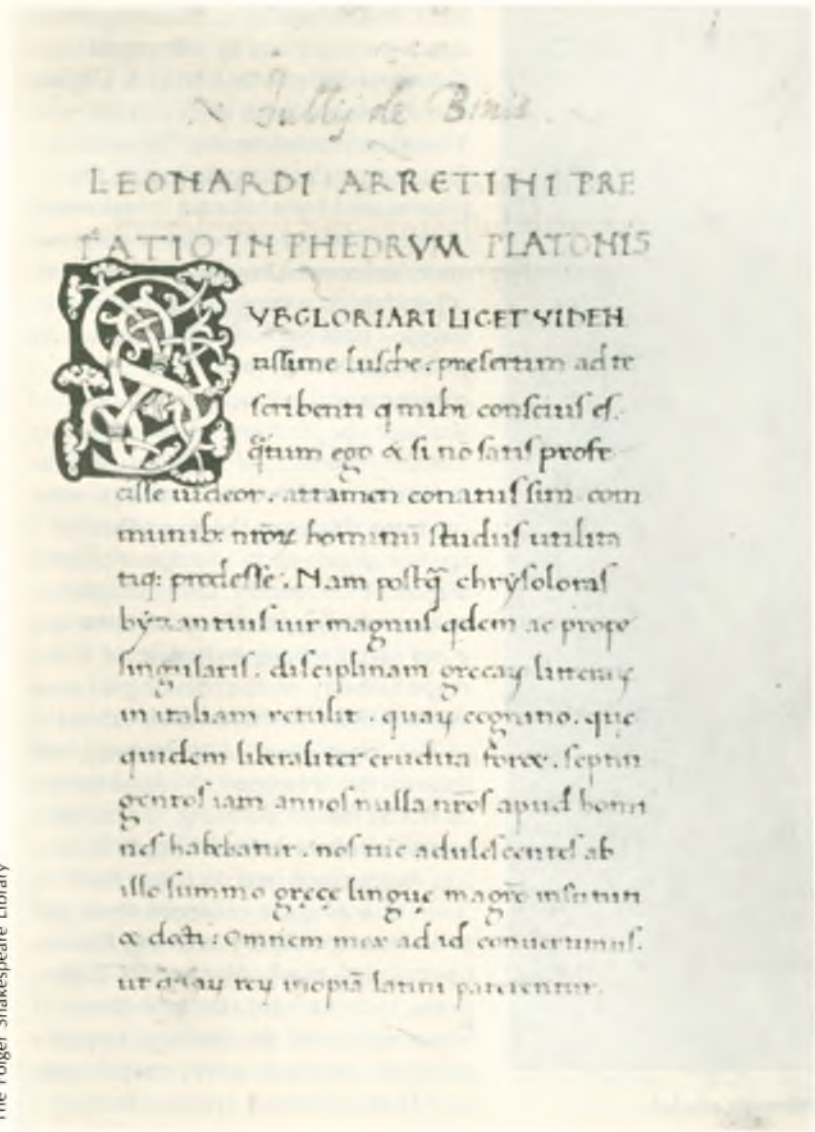 Tullij de Binis
LEONARDI ARRETINI PRE
FATIO IN PHEDRVM PLATONIS
SVBGLORIARI LICET VIDEN
tissime lusche. presertim ad te
scribenti q mihi conscius es.
q̃tum ego & si nõ satis profe
cisse uideor. attamen conatus sim com
munib: nr̃oꝝ hominũ studiis utilita
tiq: prodesse. Nam postq̃ chrysoloras
byzantius uir magnus qdem ac prope
singularis. disciplinam grecaꝝ litteraꝝ
in italiam retulit. quaꝝ cognitio. que
quidem liberaliter erudita foret. septin
gentos iam annos nulla nr̃os apud homi
nes habebatur. nos tũc adulescentes ab
illo summo grece lingue magrõ instituti
& docti: Omnem mox ad id conuertimus.
ut quaꝝ reꝝ inopiã latini paterentur.
The Folger Shakespeare Library